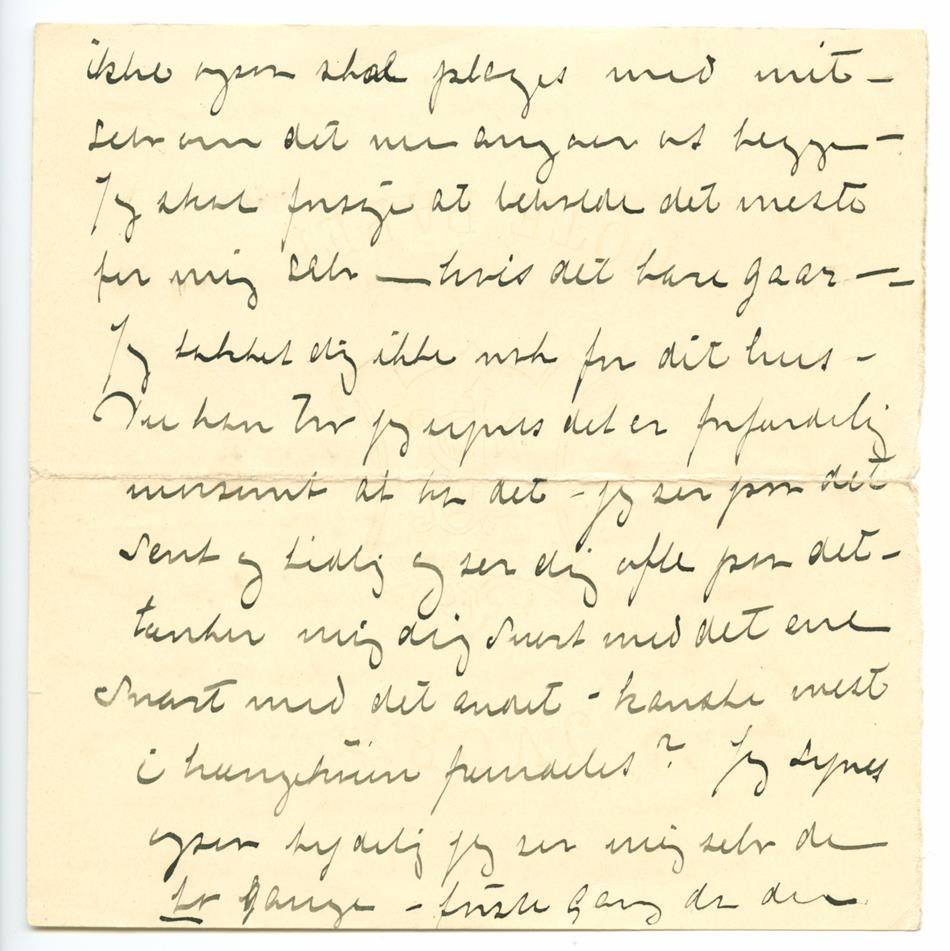 ikke ogsaa skal plages med mit –
selv om det nu angaar os begge –
Jeg skal forsøge at beholde det meste
for mig selv — hvis det bare gaar —
Jeg takket dig ikke nok for dit hus –
Du kan tro jeg synes det er forfærdelig
morsomt at ha det – jeg ser paa det
sent og tidlig og ser dig ofte paa det –
tænker mig dig snart med det ene
snart med det andet – kanske mest
i hængekøien fremdeles? Jeg synes
ogsaa tydelig jeg ser mig selv de
to gange – første gang da du